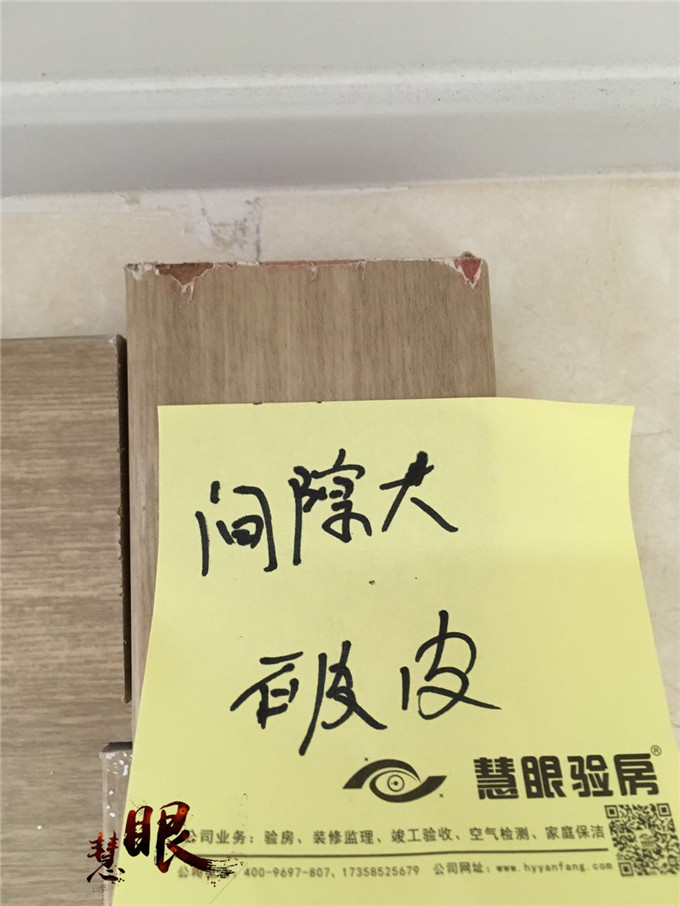 间隙大
破皮
慧眼验房®
公司业务：验房、装修监理、竣工验收、空气检测、家庭保洁
400-9697-807、17358525679 公司网址：www.hyyanfang.com
慧眼